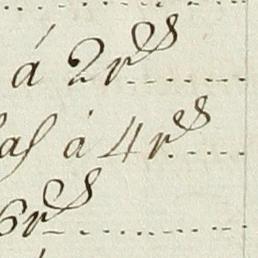 á 2r.s
las á 4r.s
6r.s